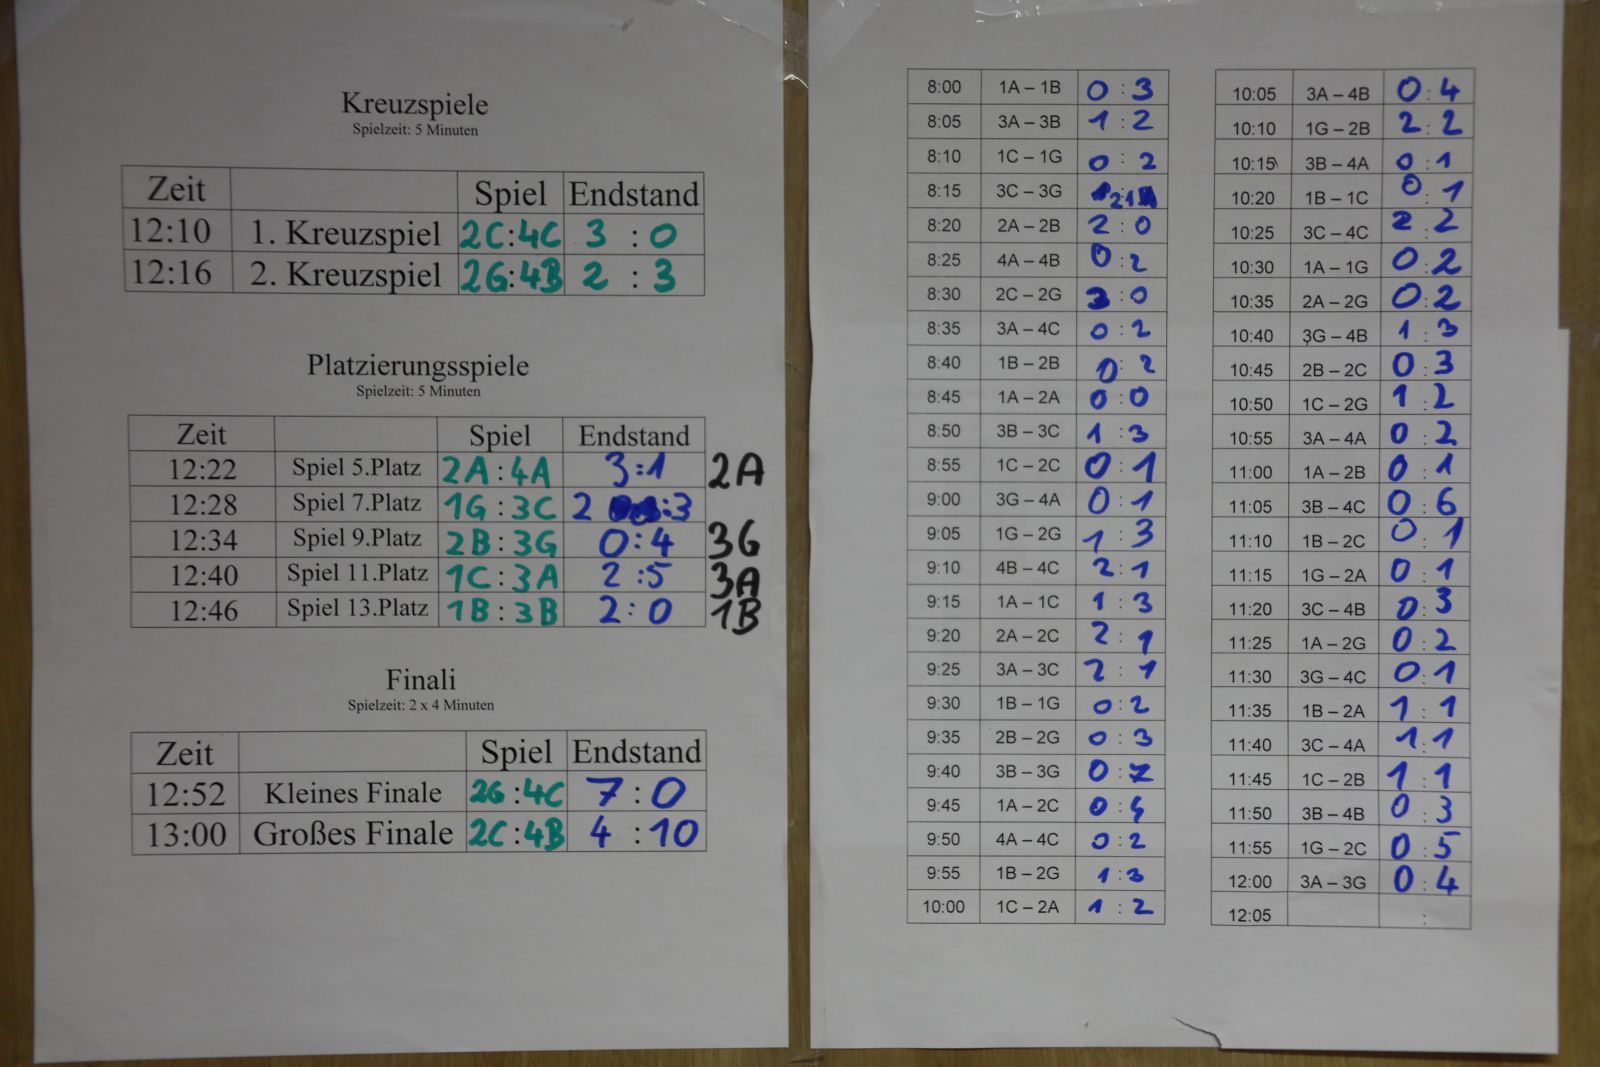 Kreuzspiele
Spielzeit: 5 Minuten
Zeit Spiel Endstand
12:10 1. Kreuzspiel 2C:4C 3 : 0
12:16 2. Kreuzspiel 2G:4B 2 : 3
Platzierungsspiele
Spielzeit: 5 Minuten
Zeit Spiel Endstand
12:22 Spiel 5.Platz 2A : 4A 3:1 2A
12:28 Spiel 7.Platz 1G : 3C 2 :3
12:34 Spiel 9.Platz 2B : 3G 0:4 3G
12:40 Spiel 11.Platz 1C : 3A 2 :5 3A
12:46 Spiel 13.Platz 1B : 3B 2 : 0 1B
Finali
Spielzeit: 2 x 4 Minuten
Zeit Spiel Endstand
12:52 Kleines Finale 2G :4C 7 : 0
13:00 Großes Finale 2C:4B 4 :10
8:00 1A – 1B 0 : 3
8:05 3A – 3B 1 : 2
8:10 1C – 1G 0 : 2
8:15 3C – 3G 2:1
8:20 2A – 2B 2 : 0
8:25 4A – 4B 0 : 2
8:30 2C – 2G 3 : 0
8:35 3A – 4C 0 : 2
8:40 1B – 2B 0 : 2
8:45 1A – 2A 0 : 0
8:50 3B – 3C 1 : 3
8:55 1C – 2C 0 : 1
9:00 3G – 4A 0 : 1
9:05 1G – 2G 1 : 3
9:10 4B – 4C 2 : 1
9:15 1A – 1C 1 : 3
9:20 2A – 2C 2 : 1
9:25 3A – 3C 2 : 1
9:30 1B – 1G 0 : 2
9:35 2B – 2G 0 : 3
9:40 3B – 3G 0 : 7
9:45 1A – 2C 0 :
9:50 4A – 4C 0 : 2
9:55 1B – 2G 1 : 3
10:00 1C – 2A 1 : 2
10:05 3A – 4B 0 : 4
10:10 1G – 2B 2 : 2
10:15 3B – 4A 0 : 1
10:20 1B – 1C 0 : 1
10:25 3C – 4C 2 : 2
10:30 1A – 1G 0 : 2
10:35 2A – 2G 0 : 2
10:40 3G – 4B 1 : 3
10:45 2B – 2C 0 : 3
10:50 1C – 2G 1 : 2
10:55 3A – 4A 0 : 2
11:00 1A – 2B 0 : 1
11:05 3B – 4C 0 : 6
11:10 1B – 2C 0 : 1
11:15 1G – 2A 0 : 1
11:20 3C – 4B 0 : 3
11:25 1A – 2G 0 : 2
11:30 3G – 4C 0 : 1
11:35 1B – 2A 1 : 1
11:40 3C – 4A 1 : 1
11:45 1C – 2B 1 : 1
11:50 3B – 4B 0 : 3
11:55 1G – 2C 0 : 5
12:00 3A – 3G 0 : 4
12:05 :